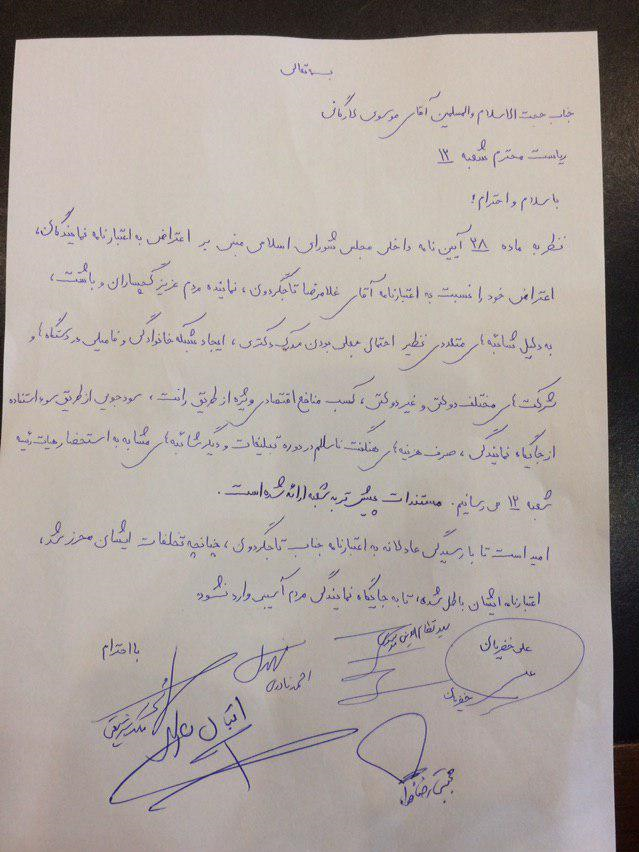 بسمه تعالی
جناب حجت الاسلام والمسلمین آقای موسوی لارگانی
ریاست محترم شعبه ۱۲
با سلام و احترام؛
نظر به ماده ۲۸ آیین نامه داخلی مجلس شورای اسلامی مبنی بر اعتراض به اعتبارنامه نمایندگان،
اعتراض خود را نسبت به اعتبارنامه آقای غلامرضا تاجگردون، نماینده مردم عزیز گچساران و باشت،
به دلیل شائبه های متعددی نظیر احتمال جعلی بودن مدرک دکتری، ایجاد شبکه خانوادگی و فامیلی در دستگاه ها و
شرکت های مختلف دولتی و غیر دولتی، کسب منافع اقتصادی ویژه از طریق رانت، سودجویی از طریق سوء استفاده
از جایگاه نمایندگی، صرف هزینه های هنگفت ناسالم در دوره تبلیغات و دیگر شائبه های مشابه به استحضار هیات رئیسه
شعبه ۱۲ می رسانیم. مستندات پیش تر به شعبه ارائه شده است.
امید است تا با رسیدگی عادلانه به اعتبارنامه جناب تاجگردون، چنانچه تخلفات ایشان محرز شد،
اعتبارنامه ایشان باطل شده، تا به جایگاه نمایندگی مردم آسیبی وارد نشود
با احترام
علی خضریان
علی خضریان
سید نظام الدین موسوی
احمد نادری
مالک شریعتی
اقبال شاکری
مجتبی رضاخواه